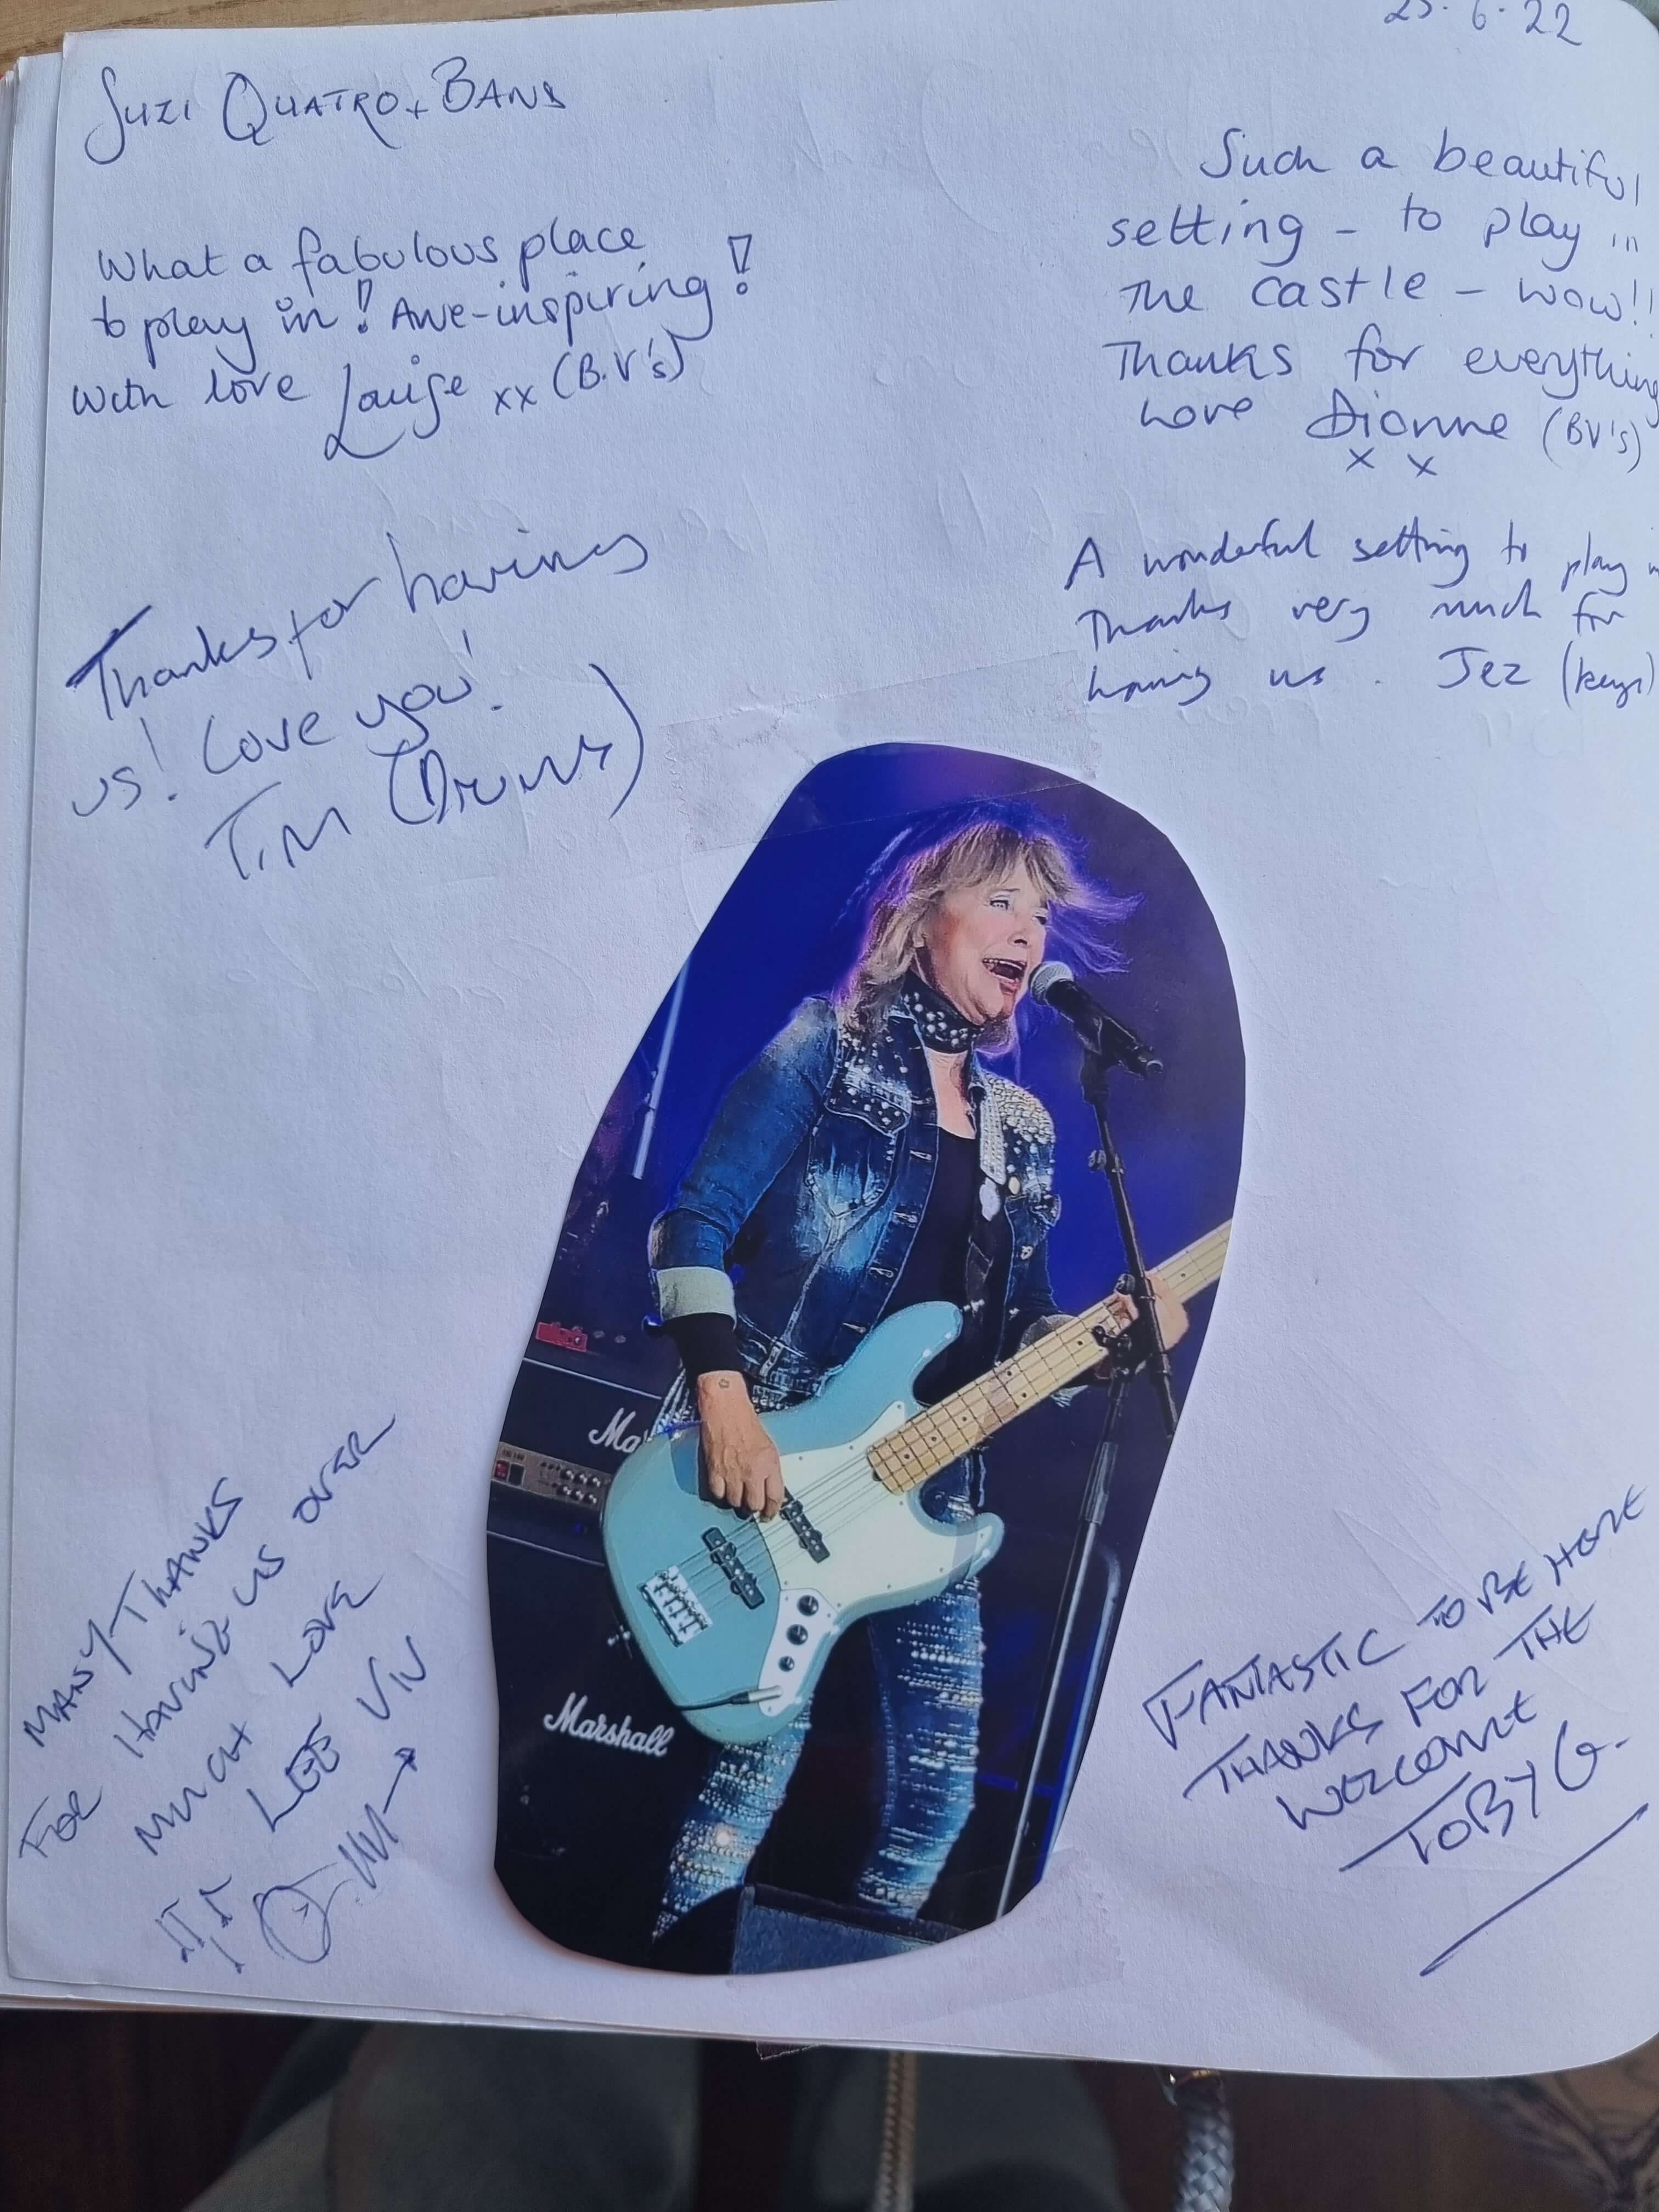 25.6.22
Suzi Quatro + Band
What a fabulous place
to play in! Awe-inspiring!
With love Louise xx (B.V's)
Such a beautiful
setting - to play in
The castle - wow!!
Thanks for everything
Love Dionne (BV's)
x x
Thanks for having
us! Love you!
Tim (Drums)
A wonderful setting to play in
Thanks very much for
having us. Jez (keys)
Ma
Marshall
MANY THANKS
FOR HAVING US OVER
MUCH LOVE
LEE VIV
FANTASTIC TO BE HERE
THANKS FOR THE
WELCOME
TOBY G.